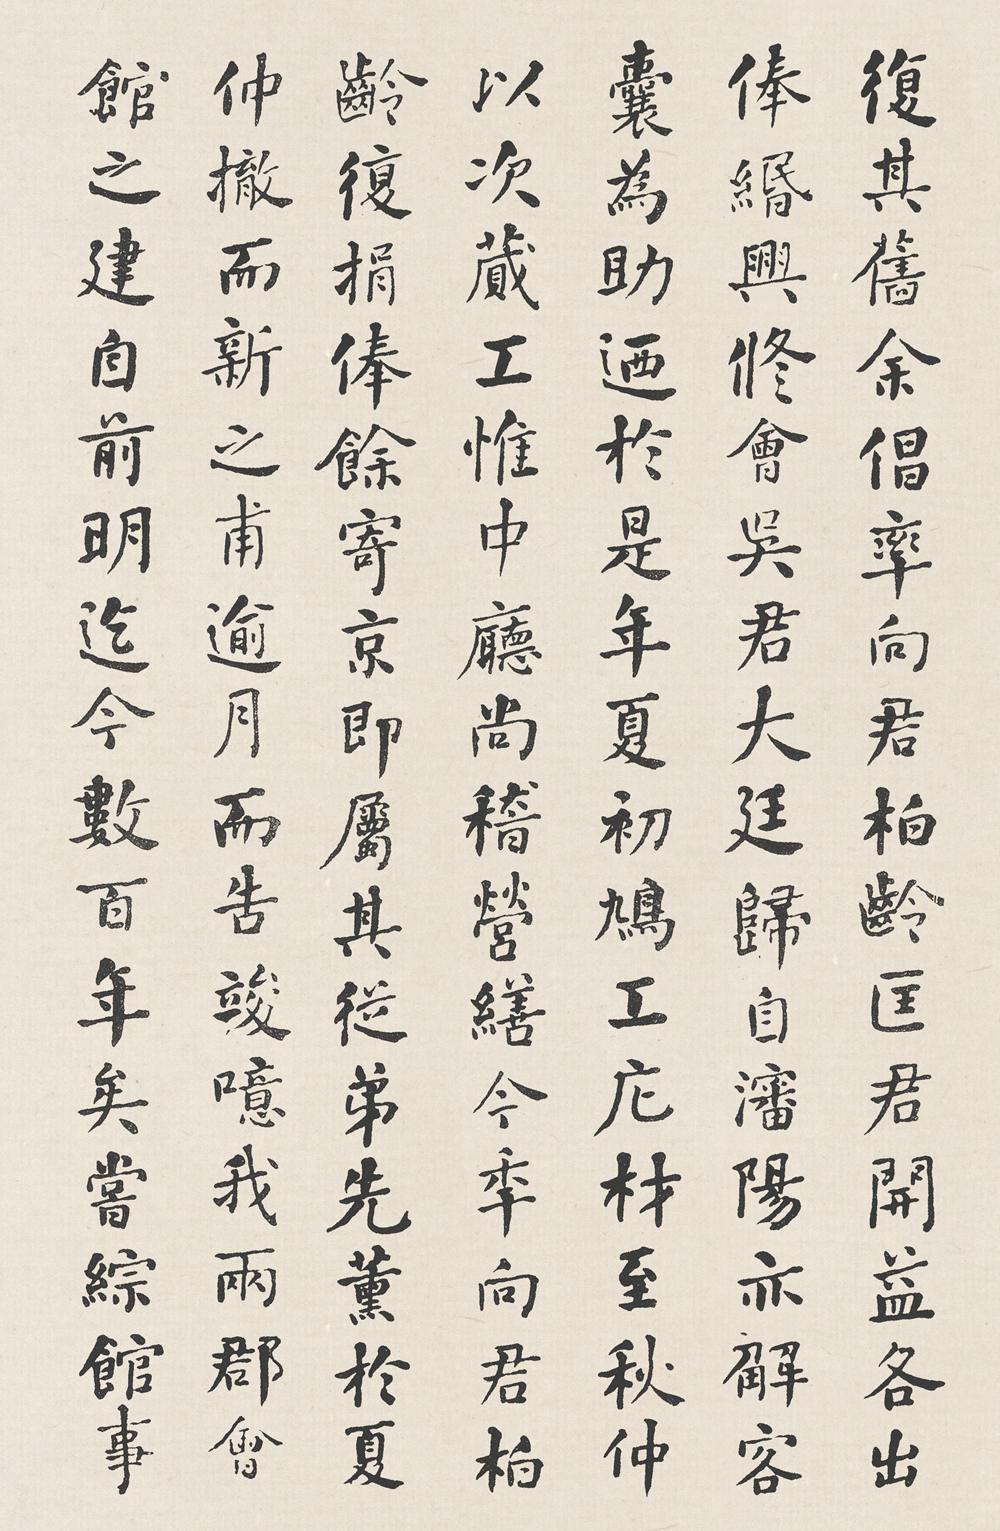 復其舊余倡率向君柏齡匡君開益各出
俸緡興修會吳君大廷歸自瀋陽亦解客
囊為助迺於是年夏初鳩工庀材至秋仲
以次蕆工惟中廳尚稽營繕今年向君柏
齡復捐俸餘寄京即屬其從弟先薰於夏
仲撤而新之甫逾月而告竣噫我兩郡會
館之建自前明迄今數百年矣嘗綜館事